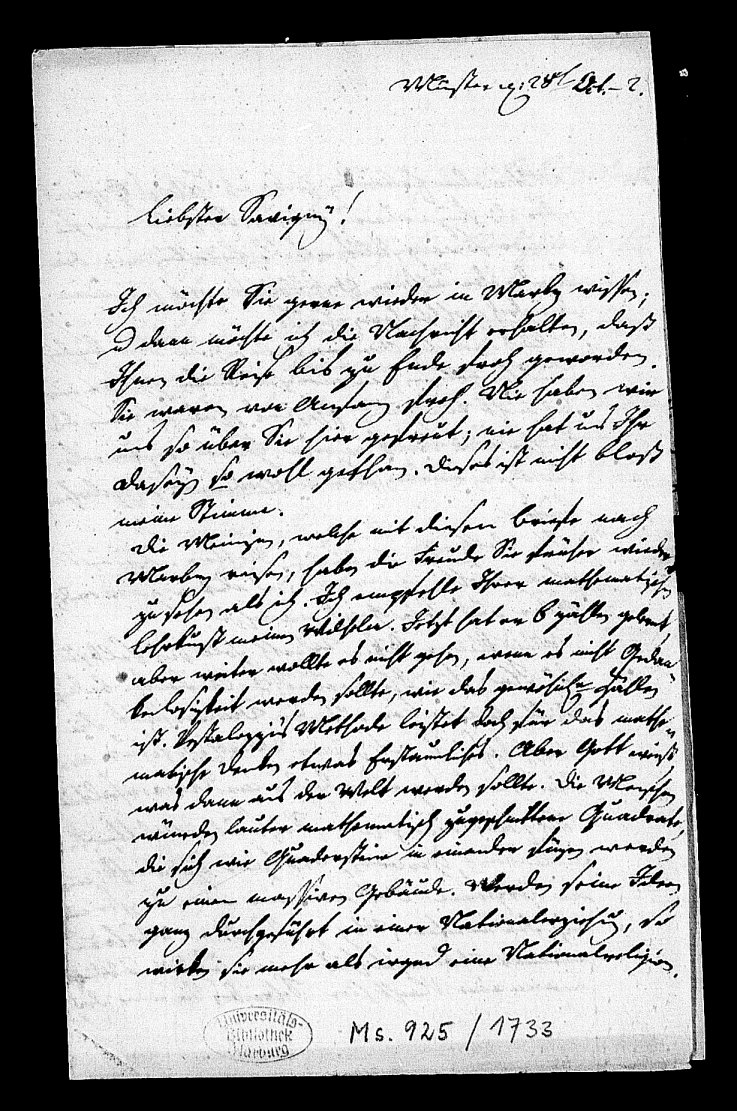 Münster, d: 28t Oct. – 2.
Liebster Savigny!
Ich möchte Sie gerne wieder in Marbg wissen;
u dann möchte ich die Nachricht erhalten, daß
Ihnen die Reise bis zu Ende froh geworden.
Sie waren von Anfang froh. Nie haben wir
uns so über Sie hier gefreut; nie hat uns Ihr
Daseyn so wohl gethan. Dieses ist nicht bloß
meine Stimme.
Die Meinigen, welche mit diesem Briefe nach
Marbg reisen, haben die Freude Sie früher wieder
zu sehen als ich. Ich empfehle Ihrer mathematischen
Lehrkunst meinen Wilhelm. Jetzt hat er 6 zählen gelernt,
aber weiter wollte es nicht gehen, wenn es nicht Gedan
kenlosigkeit werden sollte, wie das gewöhnliche Zählen
ist. Pestalozzi's Methode leistet doch für das mathe
matische Denken etwas Erstaunliches. Aber Gott weiß
was dann aus der Welt werden sollte. Die Menschen
würden lauter mathematisch zugeschnittene Quadrate,
die sich wie Quadersteine in einander fügen werden
zu einem massiven Gebäude. Werden seine Ideen
ganz durchgeführt in einer Nationalerziehung, so
wirken sie mehr als irgend eine Nationalreligion.
Universitäts-
Bibliothek
Marburg
Ms. 925 / 1733